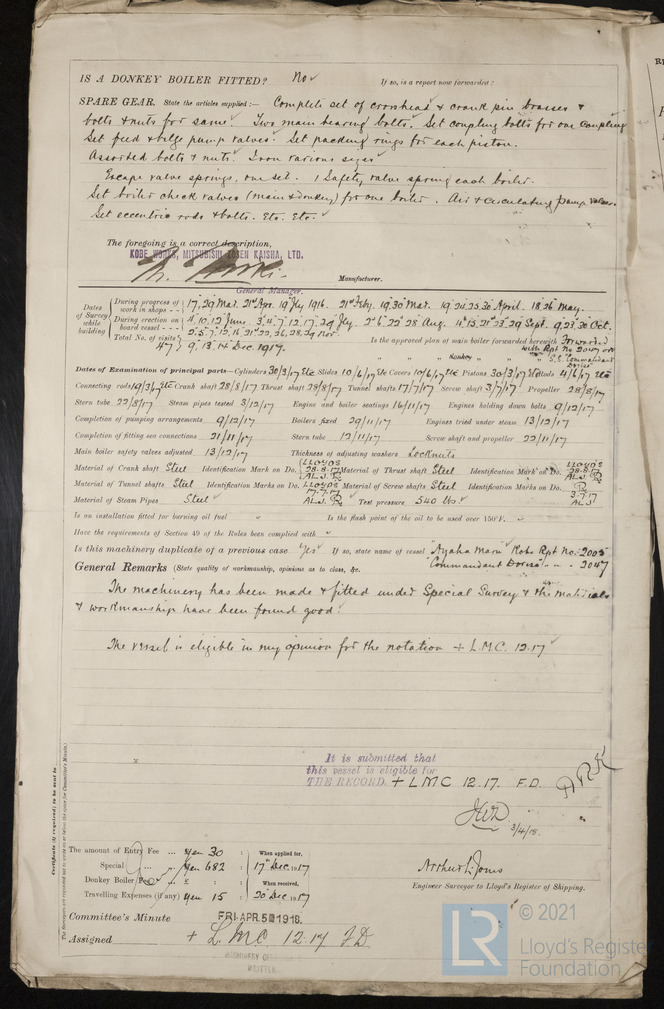 IS A DONKEY BOILER FITTED? No If so, is a report now forwarded?
SPARE GEAR. State the articles supplied:— Complete set of crosshead & crank pin brasses &
bolts & nuts for same. Two main bearing bolts. Set coupling bolts for one coupling
Set feed & bilge pump valves. Set packing rings for each piston.
Assorted bolts & nuts. Iron various sizes
Escape valve springs, one set. 1 Safety valve spring each boiler.
Set boiler check valves (main & donkey) for one boiler. Air & circulating pump valves.
Set eccentric rods & bolts. Etc. Etc.
The foregoing is a correct description,
KOBE WORKS, MITSUBISHI ZOSEN KAISHA, LTD.
Manufacturer.
General Manager.
Dates of Survey while building
During progress of work in shops - - 17, 29 Mar. 21st Apr. 19th Jly 1916. 21st Feby. 19, 30 Mar. 19, 24, 25, 30 April. 18, 26 May.
During erection on board vessel - - - 4, 10, 12 June. 3, 4, 7, 12, 17, 29 Jly. 2nd 6th 22nd 28 Aug. 4th 15, 21st 23, 29 Sept. 9, 23, 30 Oct.
Total No. of visits 47 2, 5, 7, 12, 16, 21st 22, 26, 28, 29 Nov.
9, 13, 14 Dec. 1917.
Is the approved plan of main boiler forwarded herewith Forwarded
with Rpt No. 2047 on
" " " Donkey " " " S.S. "Commandant
Dorise"
Dates of Examination of principal parts—Cylinders 30/3/17 Etc Slides 10/6/17 Etc Covers 10/6/17 Etc Pistons 30/3/17 Etc Rods 4/6/17 Etc
Connecting rods 19/3/17 Etc Crank shaft 28/8/17 Thrust shaft 28/8/17 Tunnel shafts 17/7/17 Screw shaft 3/7/17 Propeller 28/8/17
Stern tube 22/8/17 Steam pipes tested 3/12/17 Engine and boiler seatings 16/11/17 Engines holding down bolts 9/12/17
Completion of pumping arrangements 9/12/17 Boilers fixed 29/11/17 Engines tried under steam 13/12/17
Completion of fitting sea connections 21/11/17 Stern tube 12/11/17 Screw shaft and propeller 22/11/17
Main boiler safety valves adjusted 13/12/17 Thickness of adjusting washers Locknuts
Material of Crank shaft Steel Identification Mark on Do. LLOYDS 28.8.17 A.L.J. Material of Thrust shaft Steel Identification Mark on Do. LLOYDS 28.8.17 A.L.J.
Material of Tunnel shafts Steel Identification Marks on Do. LLOYDS 17.7.17 A.L.J. Material of Screw shafts Steel Identification Marks on Do. 3.7.17 A.L.J.
Material of Steam Pipes Steel Test pressure 540 lbs.
Is an installation fitted for burning oil fuel Is the flash point of the oil to be used over 150°F.
Have the requirements of Section 49 of the Rules been complied with
Is this machinery duplicate of a previous case Yes If so, state name of vessel "Ayaha Maru" Kobe Rpt No. 2005
"Commandant Dorise" " " 2047
General Remarks (State quality of workmanship, opinions as to class, &c.
The machinery has been made & fitted under Special Survey & the materials
& workmanship have been found good.
The vessel is eligible in my opinion for the notation + L.M.C. 12.17
It is submitted that
this vessel is eligible for
THE RECORD. + LMC 12.17. F.D.
3/4/18.
Certificate (if required) to be sent to
The amount of Entry Fee ... Yen 30 : When applied for,
Special ... Yen 682 : 17th Dec. 1917
Donkey Boiler Fee ... : When received,
Travelling Expenses (if any) Yen 15 : 20th Dec. 1917
Arthur L. Jones
Engineer Surveyor to Lloyd's Register of Shipping.
Committee's Minute FRI. APR. 5 1918
Assigned + L.M.C. 12.17 F.D.
MACHINERY
WRITTEN
LR
© 2021
Lloyd's Register
Foundation